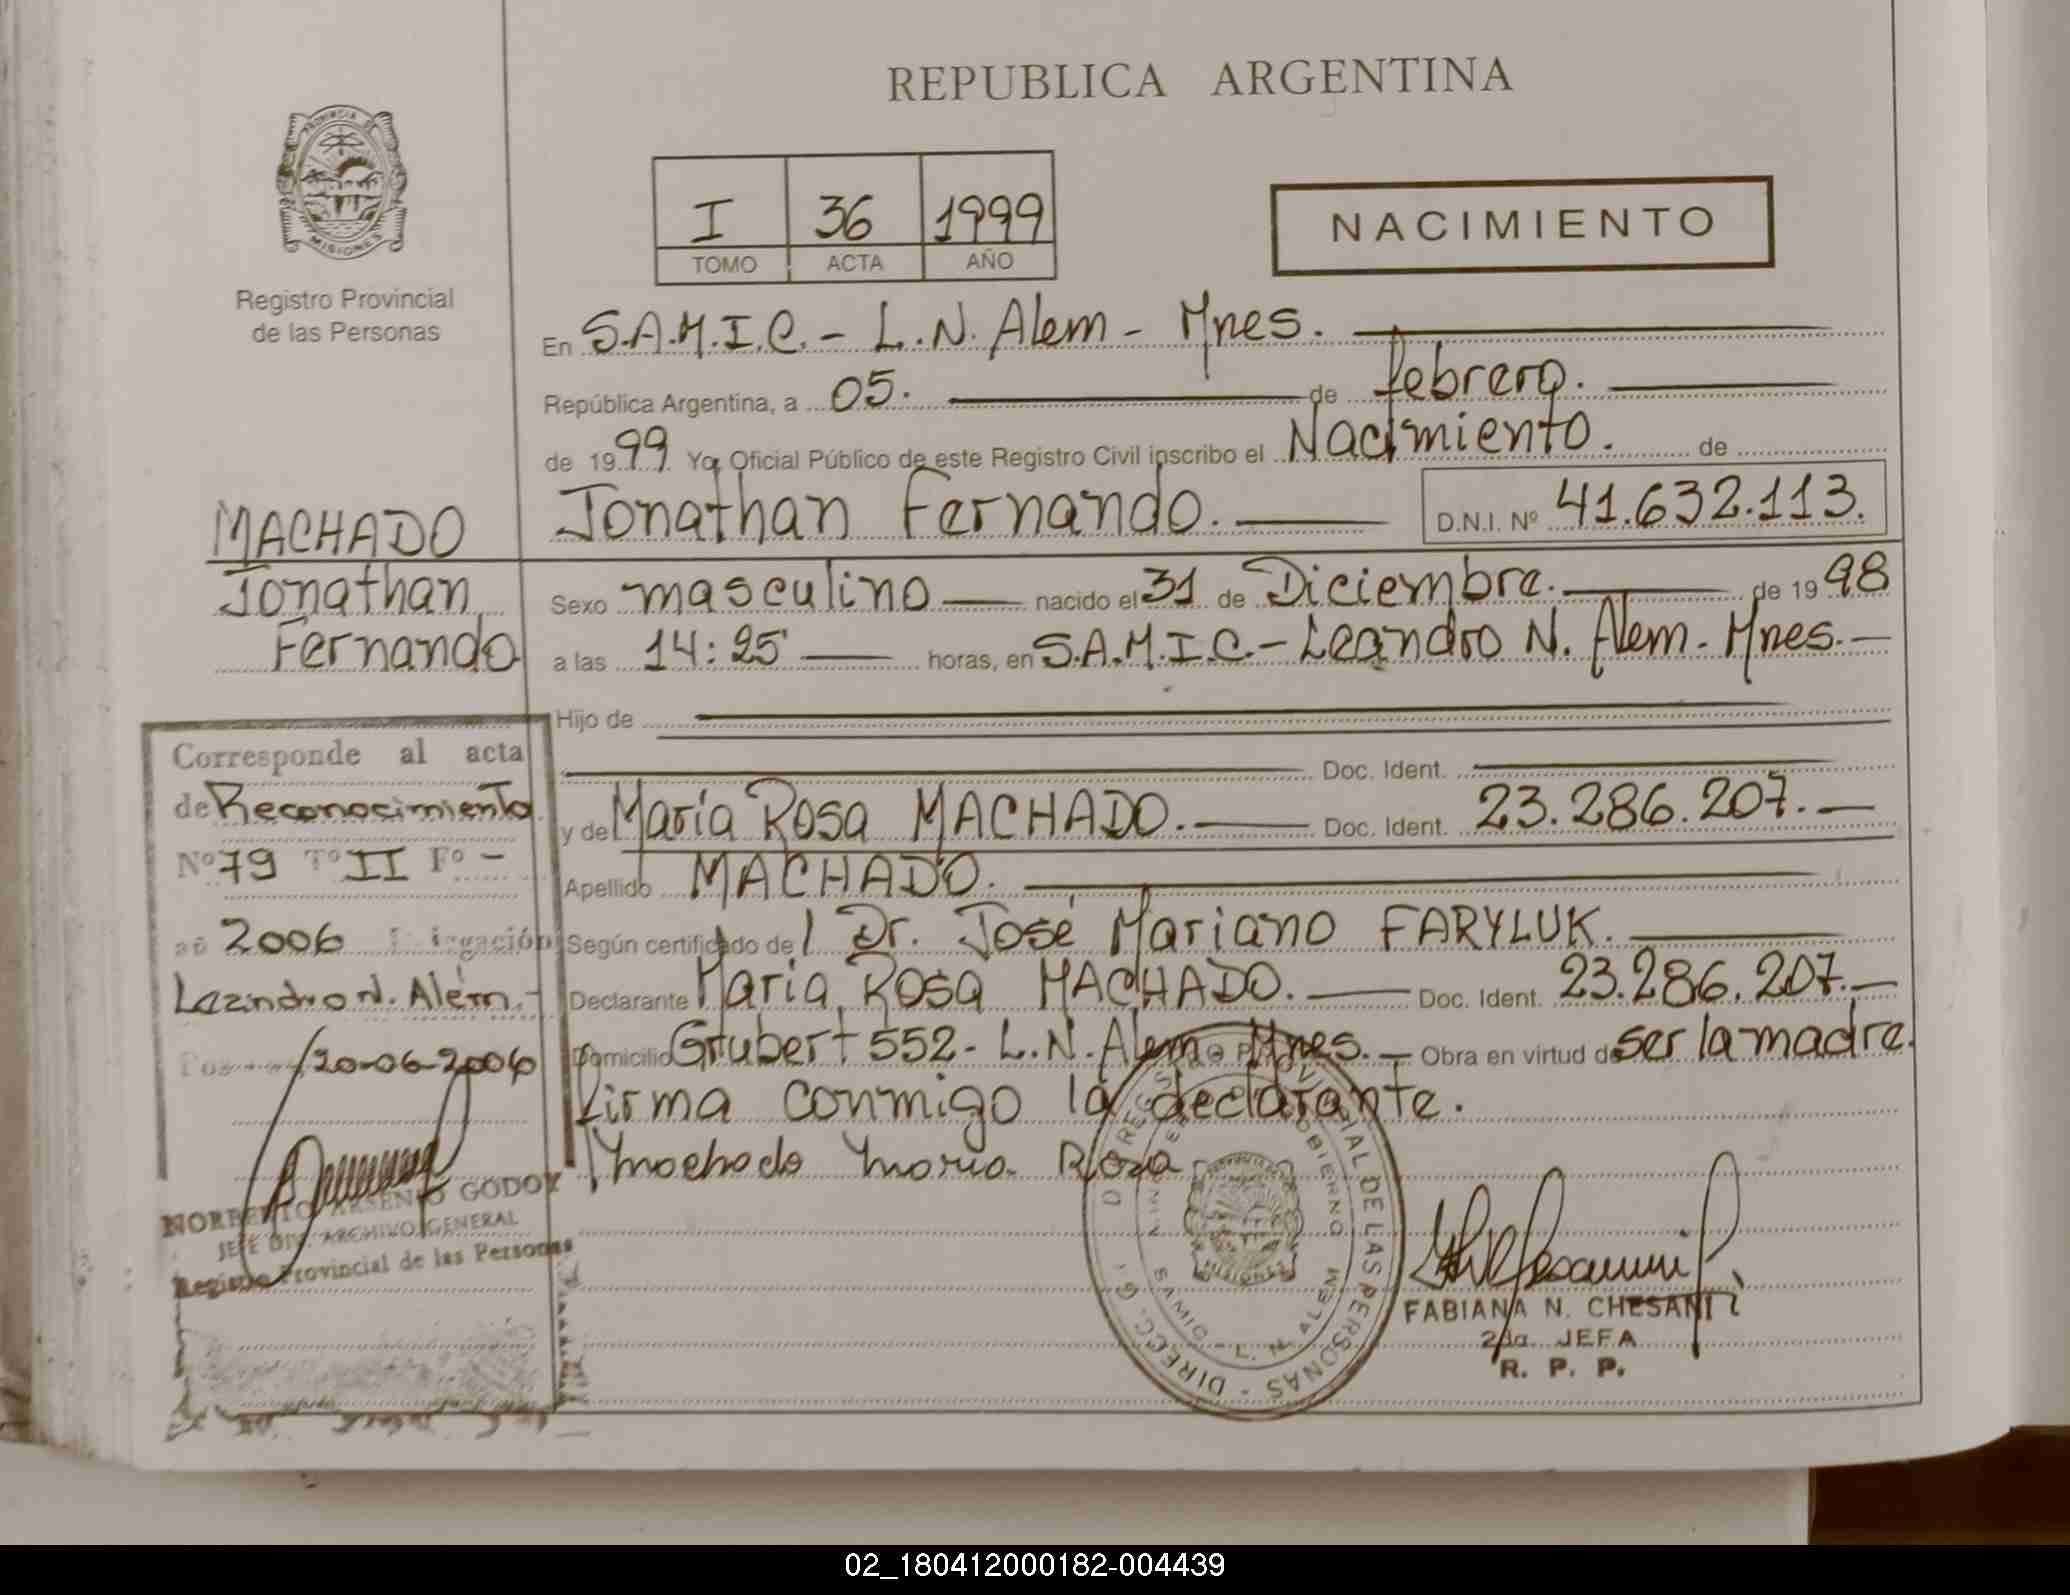 REPUBLICA ARGENTINA
PROVINCIA DE
MISIONES
Registro Provincial
de las Personas
I 36 1999
TOMO ACTA AÑO
NACIMIENTO
En S.A.M.I.C.- L.N. Alem - Mnes.
República Argentina, a 05. de febrero.
de 1999 Yo, Oficial Público de este Registro Civil inscribo el Nacimiento. de
Jonathan Fernando. D.N.I. Nº 41.632.113.
MACHADO
Jonathan
Fernando
Sexo masculino nacido el 31 de Diciembre. de 1998
a las 14:25 horas, en S.A.M.I.C.- Leandro N. Alem - Mnes.-
Hijo de
Doc. Ident.
y de María Rosa MACHADO. Doc. Ident. 23.286.207.-
Apellido MACHADO.
Según certificado de / Dr. José Mariano FARYLUK.
Declarante María Rosa MACHADO. Doc. Ident. 23.286.207.-
Domicilio Grubert 552- L.N. Alem Mnes.- Obra en virtud de ser la madre.
firma conmigo la declarante.
Machado Maria Rosa
Corresponde al acta
de Reconocimiento
Nº 79 Tº II Fº -
2006
Leandro N. Alem.-
20-06-2006
NORBERTO ARSENIO GODOY
JEFE DIV. ARCHIVO GENERAL
Registro Provincial de las Personas
DIRECC. G. REGISTRO PROVINCIAL DE LAS PERSONAS
SAMIC - L. N. ALEM
MISIONES
FABIANA N. CHESANI
2da. JEFA
R. P. P.
02_180412000182-004439